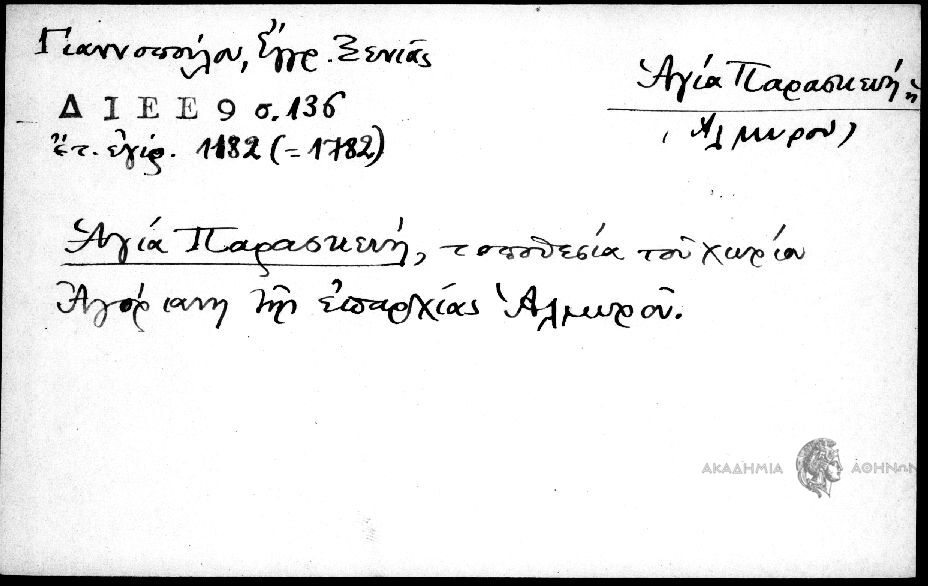 Γιαννοπούλου, Ἔγγρ. Ξενιᾶς
Δ Ι Ε Ε 9 σ. 136
ἔτ. ἐγγρ. 1182 (= 1782)
Ἁγία Παρασκευή, ἡ
(Ἁλμυροῦ)
Ἁγία Παρασκευή, τοποθεσία τοῦ χωρίου
Ἀγόριανη τῆς ἐπαρχίας Ἁλμυροῦ.
ΑΚΑΔΗΜΙΑ ΑΘΗΝΩΝ